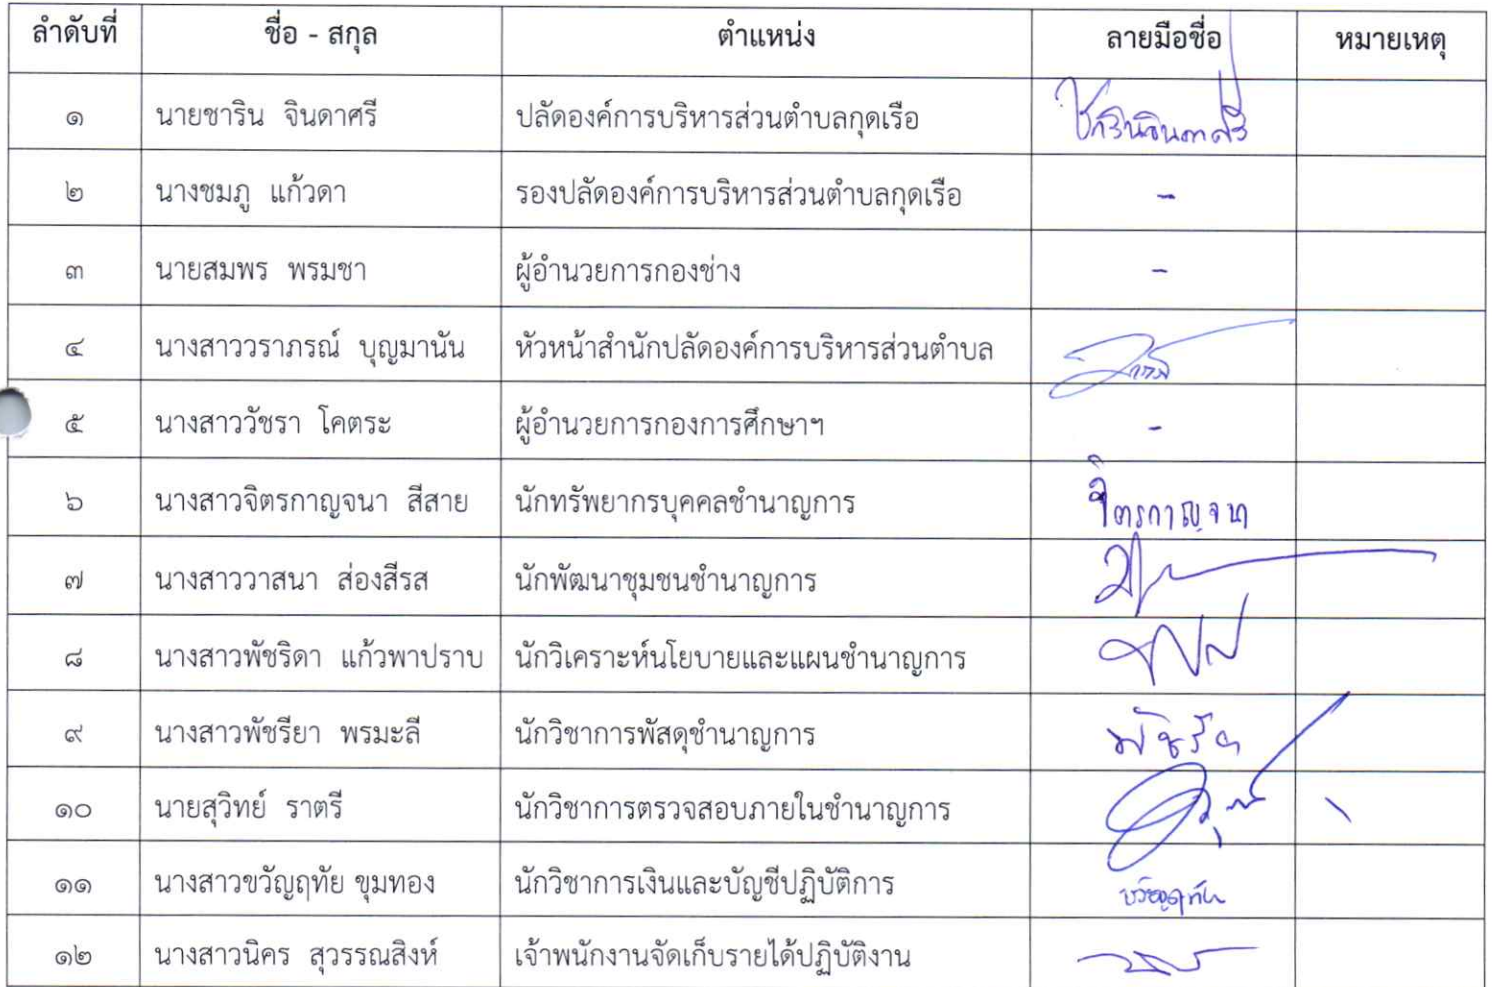 ลำดับที่ ชื่อ - สกุล ตำแหน่ง ลายมือชื่อ หมายเหตุ
๑ นายชาริน จินดาศรี ปลัดองค์การบริหารส่วนตำบลกุดเรือ ชารินจินดาศรี
๒ นางชมภู แก้วดา รองปลัดองค์การบริหารส่วนตำบลกุดเรือ -
๓ นายสมพร พรมชา ผู้อำนวยการกองช่าง -
๔ นางสาววราภรณ์ บุญมานัน หัวหน้าสำนักปลัดองค์การบริหารส่วนตำบล
๕ นางสาววัชรา โคตระ ผู้อำนวยการกองการศึกษาฯ -
๖ นางสาวจิตรกาญจนา สีสาย นักทรัพยากรบุคคลชำนาญการ จิตรกาญจนา
๗ นางสาววาสนา ส่องสีรส นักพัฒนาชุมชนชำนาญการ
๘ นางสาวพัชริดา แก้วพาปราบ นักวิเคราะห์นโยบายและแผนชำนาญการ
๙ นางสาวพัชรียา พรมะลี นักวิชาการพัสดุชำนาญการ
๑๐ นายสุวิทย์ ราตรี นักวิชาการตรวจสอบภายในชำนาญการ
๑๑ นางสาวขวัญฤทัย ขุมทอง นักวิชาการเงินและบัญชีปฏิบัติการ ขวัญฤทัย
๑๒ นางสาวนิคร สุวรรณสิงห์ เจ้าพนักงานจัดเก็บรายได้ปฏิบัติงาน